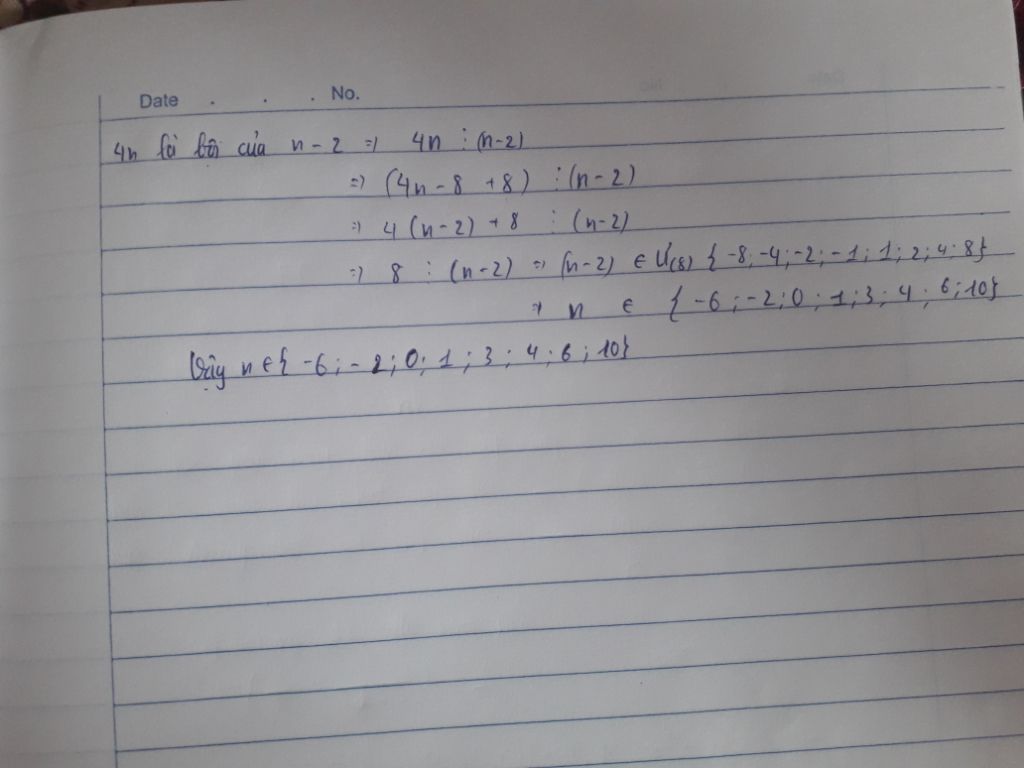 Date . . . No.
4n là bội của n - 2 => 4n ⋮ (n-2)
=> (4n - 8 + 8) ⋮ (n - 2)
=> 4 (n - 2) + 8 ⋮ (n - 2)
=> 8 ⋮ (n - 2) => (n - 2) ∈ Ư(8) { -8; -4; -2; -1; 1; 2; 4; 8}
=> n ∈ { -6; -2; 0; 1; 3; 4; 6; 10}
Vậy n ∈ { -6; -2; 0; 1; 3; 4; 6; 10}